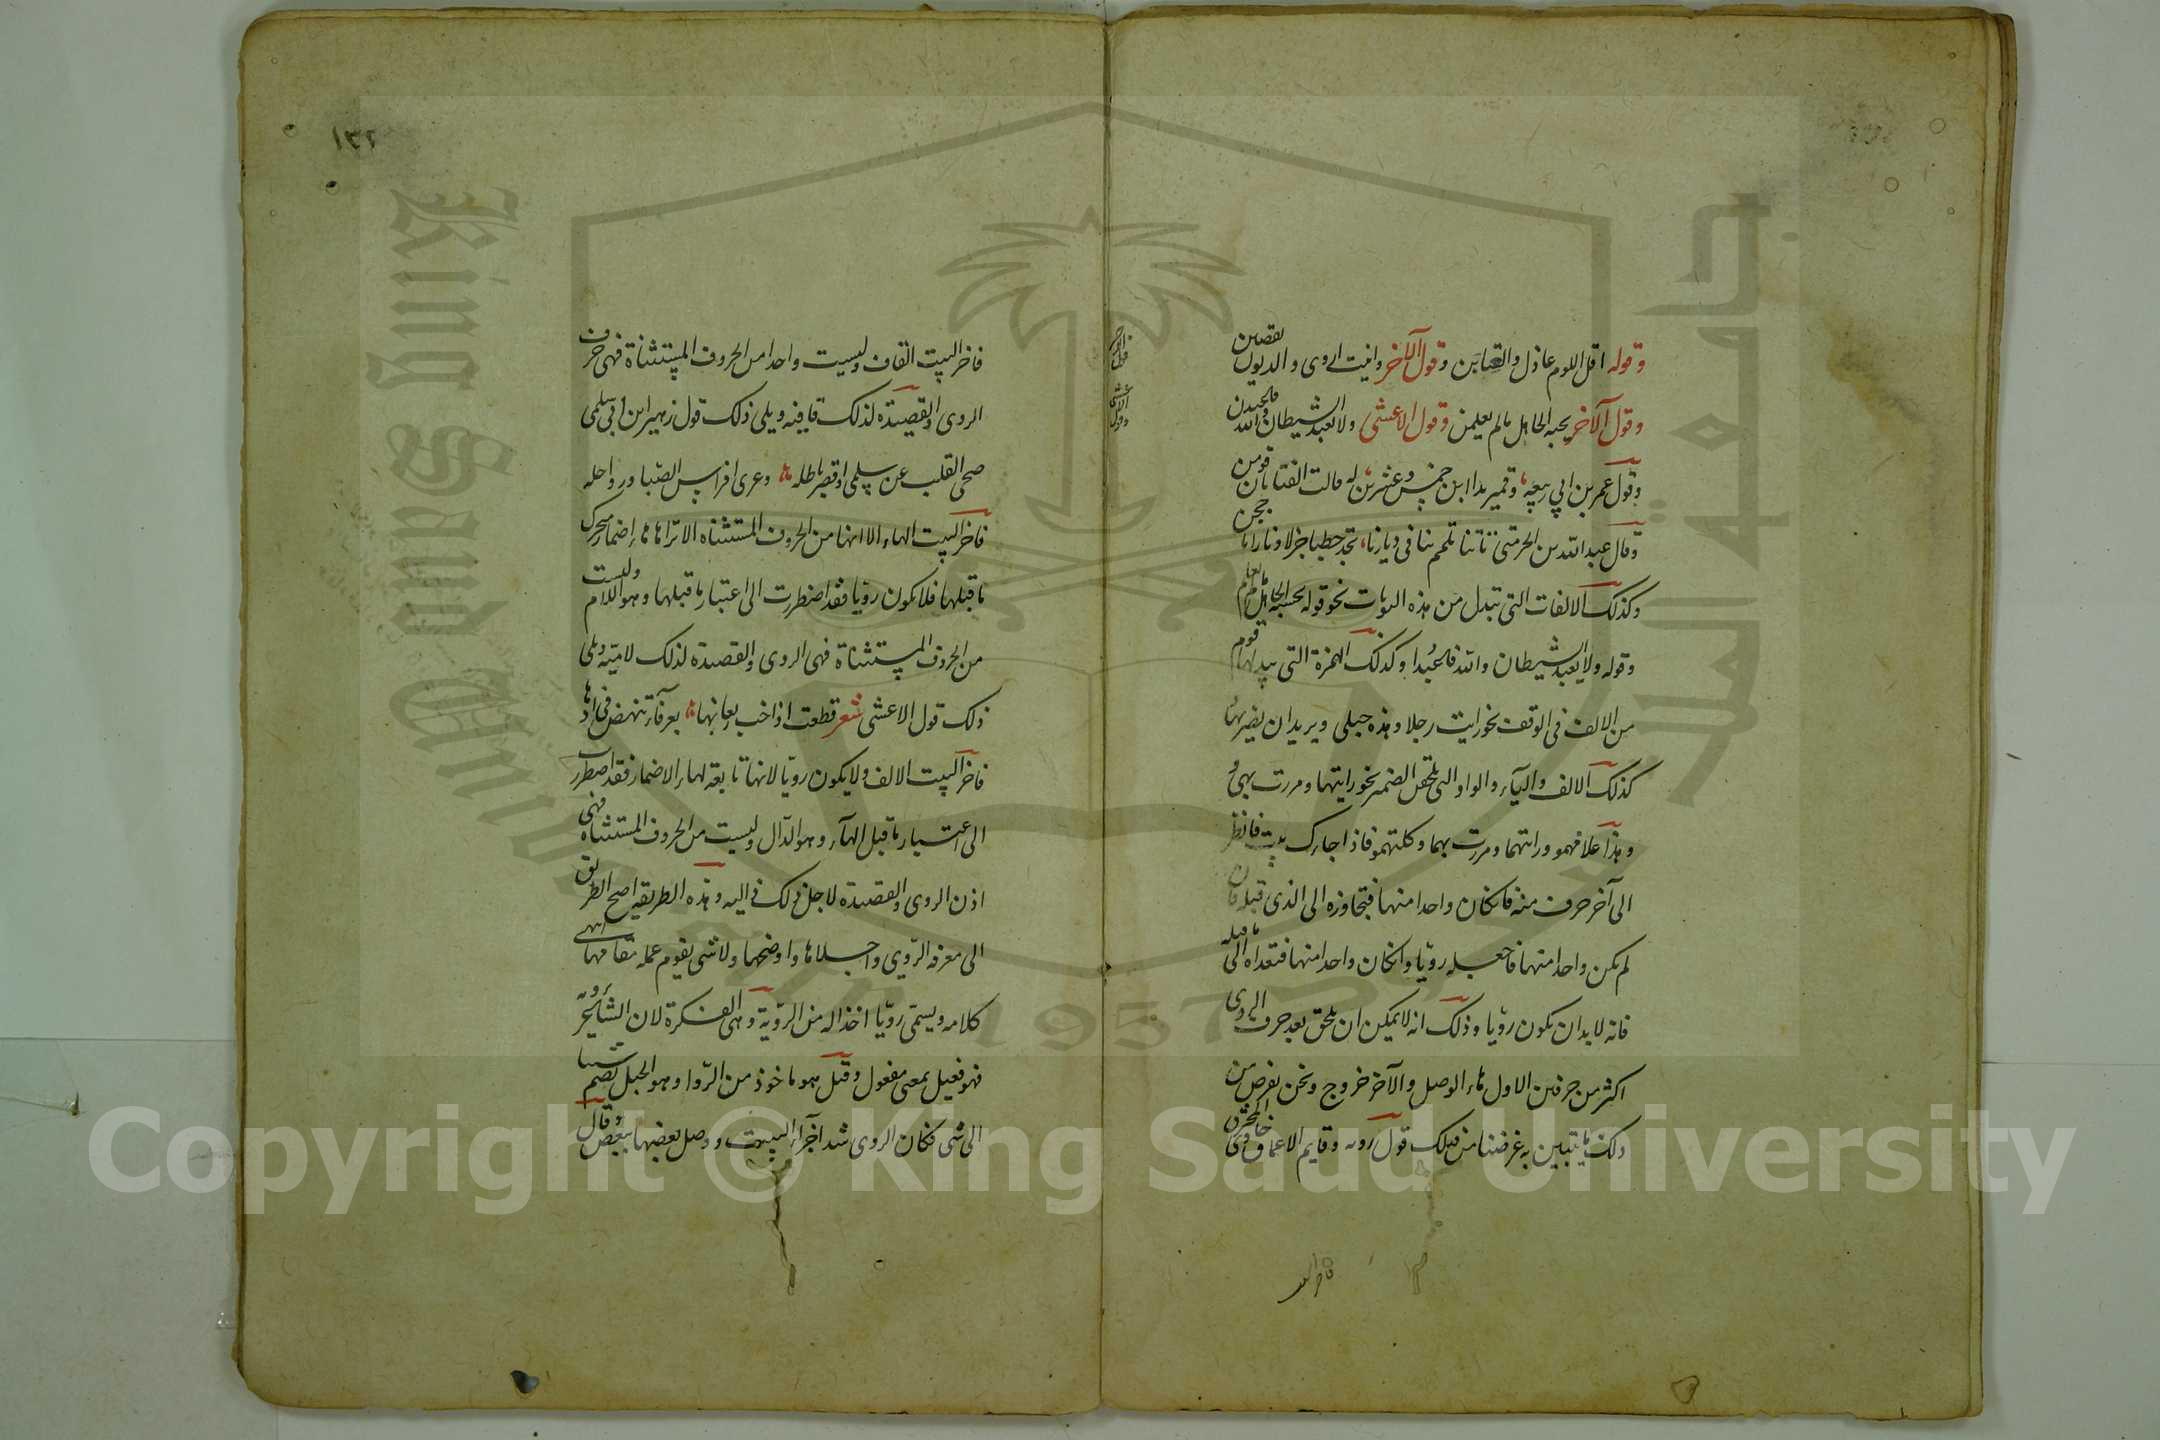 وقوله اقل اللوم عاذل والعتابن وقول الآخر داينت اروى والديون تقضين
وقول الآخر يحسبه الجاهل ما لم يعلمن وقول الاعشى ولا تعبد الشيطان والله فاعبدن
وقول عمر بن ابي ربيعة وقمير بدا ابن خمس وعشرين له قالت الفتاتان قومن
وقال عبد الله بن الحر متى تاتنا تلمم بنا في ديارنا تجد حطبا جزلا ونارا تاججن
وكذلك الالفات التي تبدل من هذه النونات نحو قوله يحسبه الجاهل ما لم يعلما
وقوله ولا تعبد الشيطان والله فاعبدا وكذلك الهمزة التي يبدلها قوم
من الالف في الوقف نحو رايت رجلا وهذه حبلى ويريدان يضربها
كذلك الالف والياء والواو التي تلحقن الضمير نحو رايتها ومررت بهي
وهذا غلامهمو ورايتهما ومررت بهما وكلمتهمو فاذا جاءك بيت فانظر
الى آخر حرف منه فان كان واحدا منها فتجاوزه الى الذي قبله فان
لم يكن واحدا منها فاجعله رويا وان كان واحدا منها فتعداه الى ما قبله
فانه لا بد ان يكون رويا وذلك انه لا يمكن ان يلحق بعد حرف الروي
اكثر من حرفين الاول هاء الوصل والآخر خروج ونحن نفرض من
ذلك ما يتبين به غرضنا من ذلك قول روبه وقايم الاعماق خاوي المخترق
فاخر البيت
فاخر البيت القاف وليست واحدا من الحروف المستثناة فهى حرف
الروى والقصيدة لذلك قافية ويلى ذلك قول زهير ابن ابى سلمى
صحى القلب عن سلمى واقصر باطله وعرى افراس الصبا ورواحله
فاخر البيت الهاء الا انها من الحروف المستثناه الا تراها هاء اضمار متحرك
ما قبلها فلا تكون رويا فقد اضطررت الى اعتبار ما قبلها وهو اللام وليست
من الحروف المستثناة فهى الروى والقصيدة لذلك لامية ويلى
ذلك قول الاعشى شعر قطعت اذا خب ريعانها بعرفاء تنهض في آدها
فاخر البيت الالف ولا يكون رويا لانها تابعة لهاء الاضمار فقد اضطررت
الى اعتبار ما قبل الهاء وهو الدال وليست من الحروف المستثناه فهى
اذن الروى والقصيدة لاجل ذلك داليه وهذه الطريقه اصح الطريق
الى معرفه الروى واجلاها واوضحها ولا شى يقوم عمله مقامها انتهى
كلامه ويسمى رويا اخذا له من الروية وهى الفكرة لان الشاعر يرويه
فهو فعيل بمعنى مفعول وقيل هو ماخوذ من الروا وهو الحبل يضم شيا
الى شى فكان الروى شد آجزاء البيت ووصل بعضها ببعض وقال
١٣٢